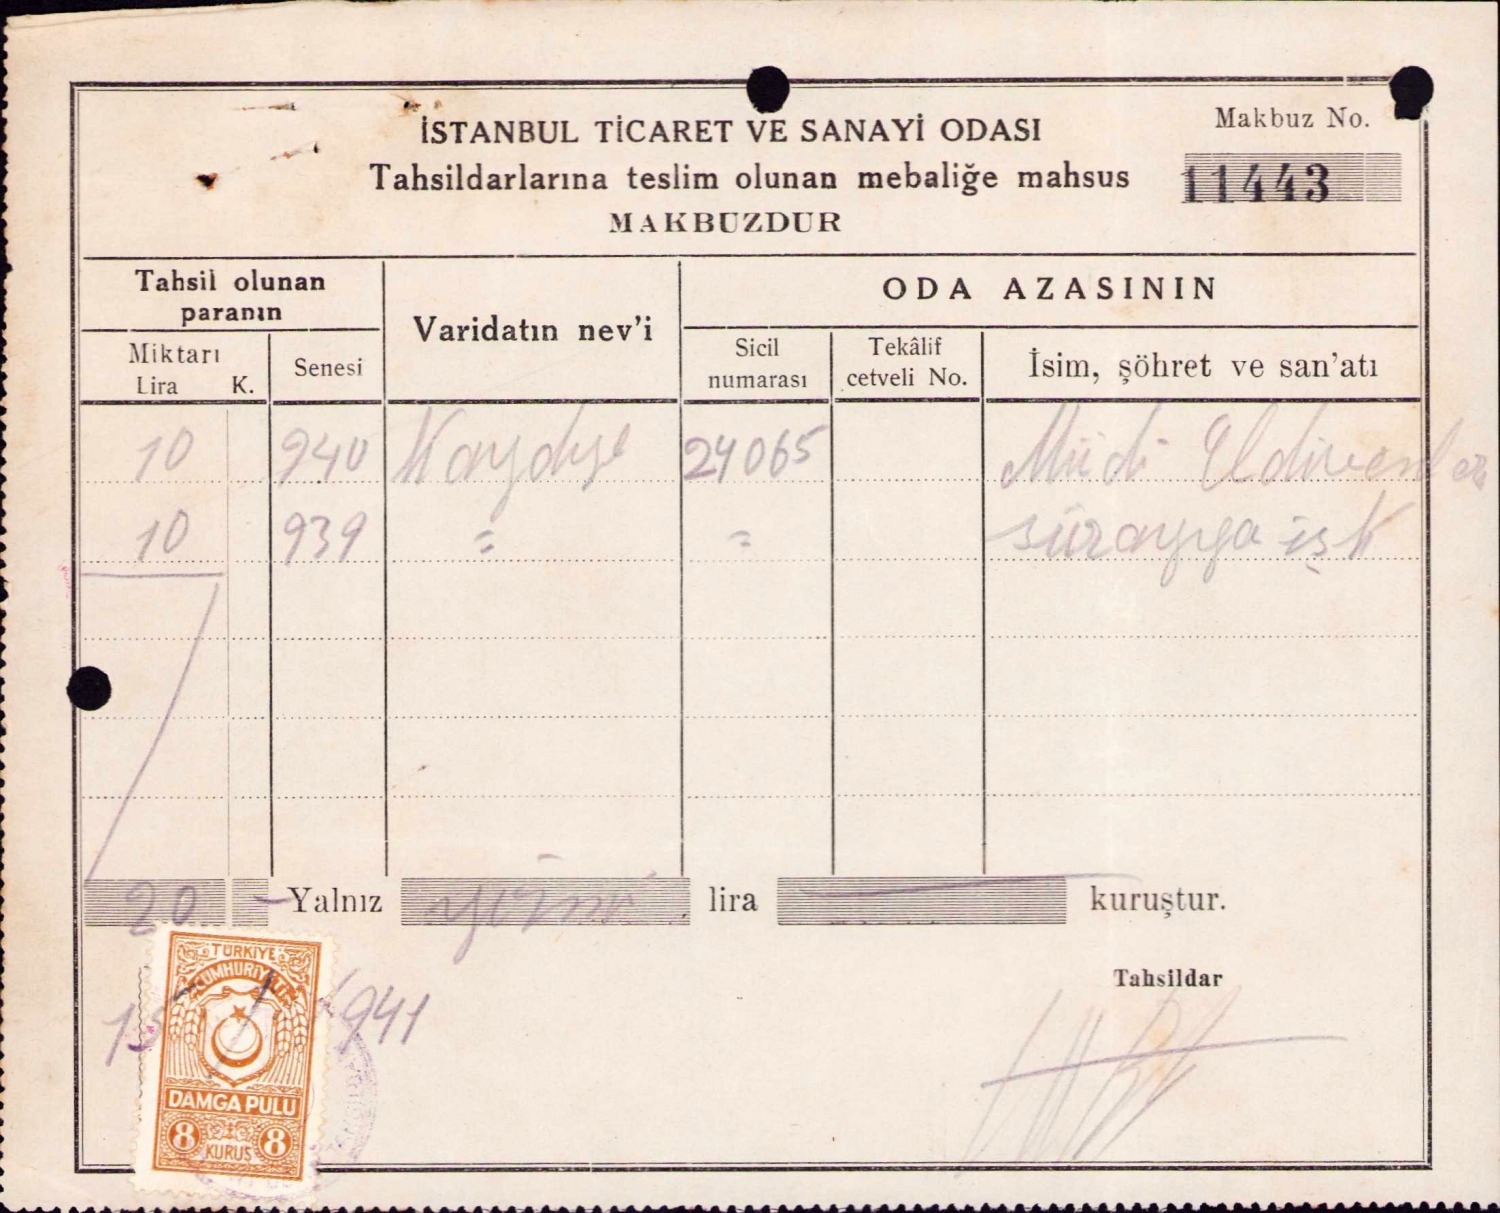 İSTANBUL TİCARET VE SANAYİ ODASI
Makbuz No.
Tahsildarlarına teslim olunan mebaliğe mahsus
11443
MAKBUZDUR
Tahsil olunan
paranın
Varidatın nev'i
ODA AZASININ
Miktarı
Lira K.
Senesi
Sicil
numarası
Tekâlif
cetveli No.
İsim, şöhret ve san'atı
10 940 Kaydiye 24065
10 939 = =
20 Yalnız yirmi lira kuruştur.
Tahsildar
15 941
TÜRKİYE
CUMHURİYETİ
DAMGA PULU
8 KURUŞ 8